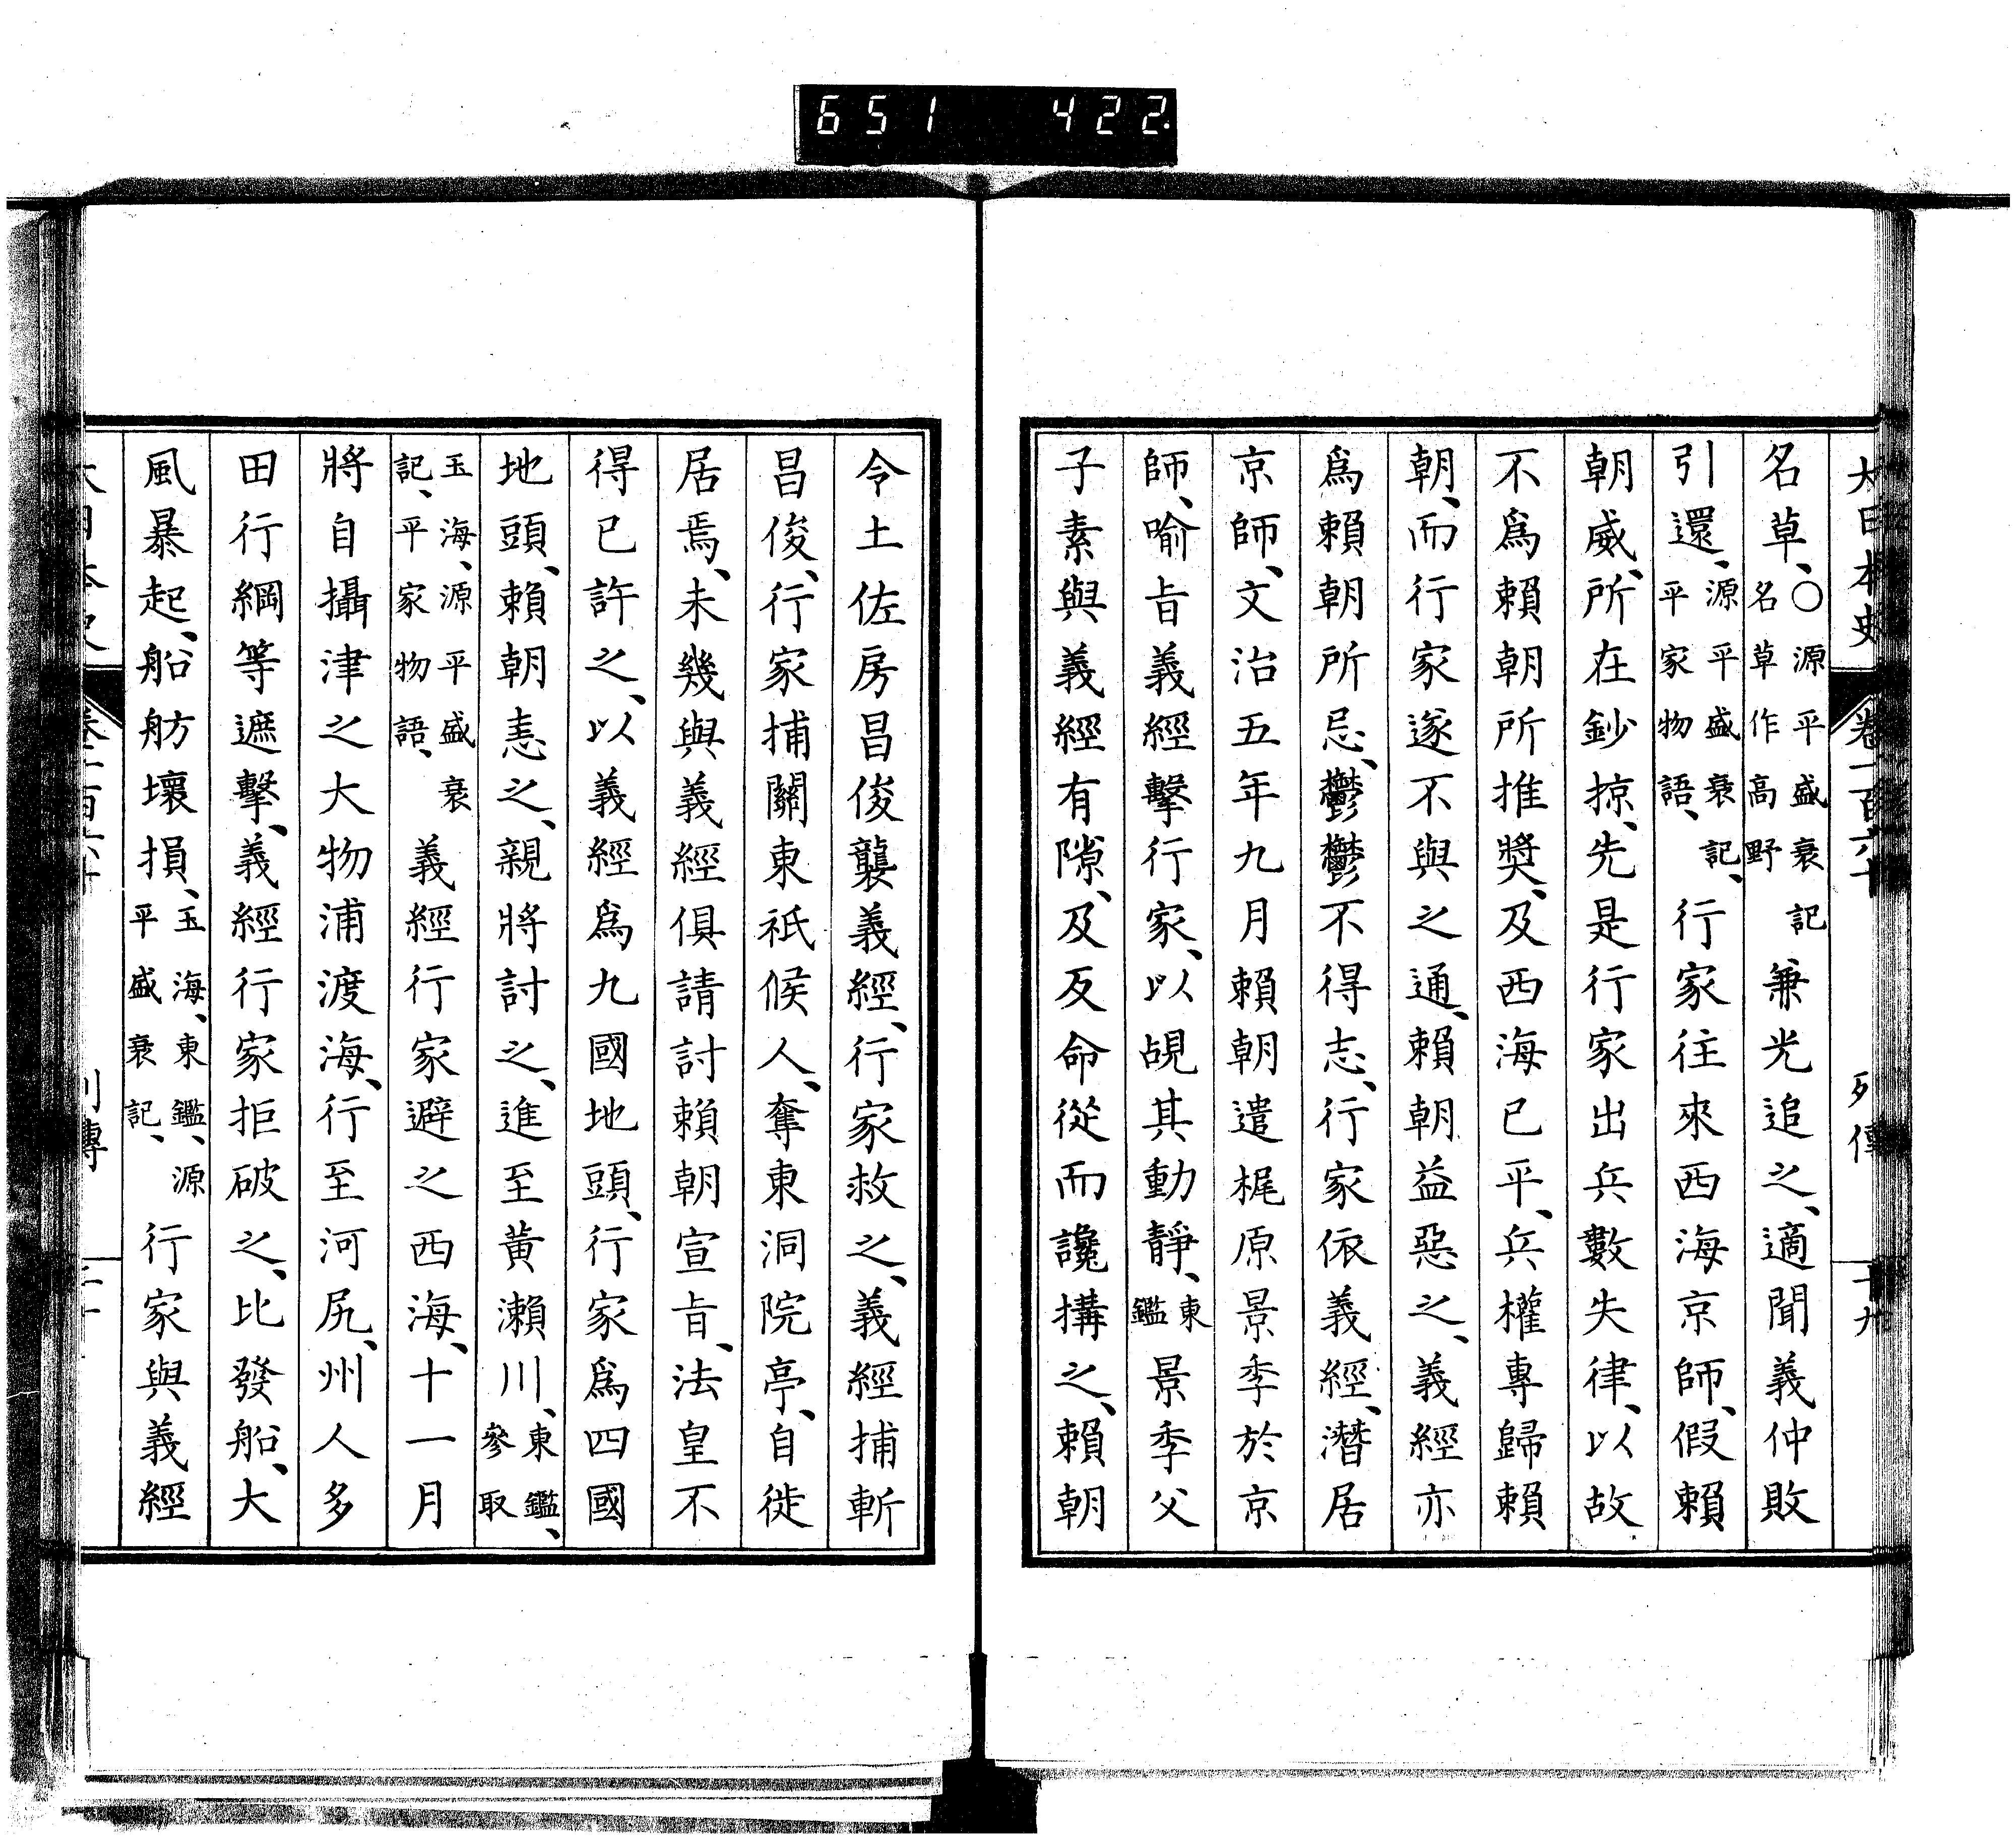 651 422
大日本史 卷一百六十 列傳 十九
名草、〇源平盛衰記名草作高野兼光追之、適聞義仲敗
引還、源平盛衰記、平家物語、行家往來西海京師、假賴
朝威、所在鈔掠、先是行家出兵數失律、以故
不爲賴朝所推獎、及西海已平、兵權專歸賴
朝、而行家遂不與之通、賴朝益惡之、義經亦
爲賴朝所忌、鬱鬱不得志、行家依義經、潛居
京師、文治五年九月賴朝遣梶原景季於京
師、喻旨義經擊行家、以覘其動靜、東鑑景季父
子素與義經有隙、及反命從而讒搆之、賴朝
令土佐房昌俊襲義經、行家救之、義經捕斬
昌俊、行家捕關東祇候人、奪東洞院亭、自徙
居焉、未幾與義經俱請討賴朝宣旨、法皇不
得已許之、以義經爲九國地頭、行家爲四國
地頭、賴朝恚之、親將討之、進至黃瀨川、東鑑、參取
玉海、源平盛衰記、平家物語、義經行家避之西海、十一月
將自攝津之大物浦渡海、行至河尻、州人多
田行綱等遮擊、義經行家拒破之、比發船、大
風暴起、船舫壞損、玉海、東鑑、源平盛衰記、行家與義經